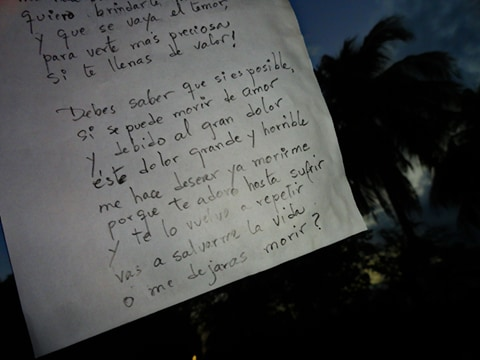 quiero brindarte
y que se vaya el temor,
para verte más preciosa
si te llenas de valor!
Debes saber que si es posible,
si se puede morir de amor
y debido al gran dolor
éste dolor grande y horrible
me hace desear ya morirme
porque te adoro hasta sufrir
y te lo vuelvo a repetir
vas a salvarme la vida
o me dejaras morir?